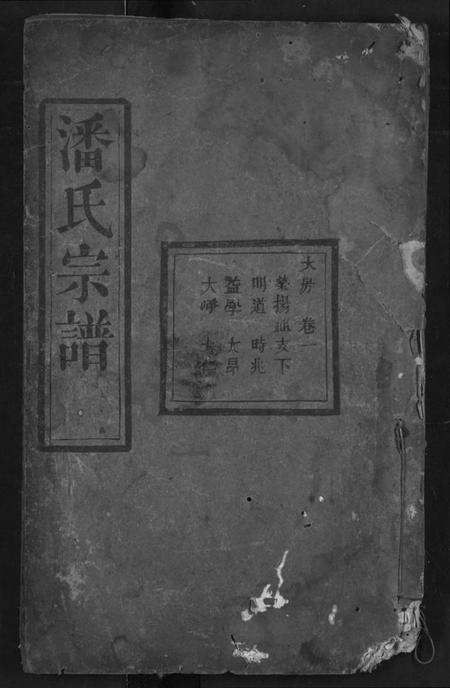 大房 卷一
榮揚公支下
明道 時兆
益學 大昂
大崢
潘氏宗譜